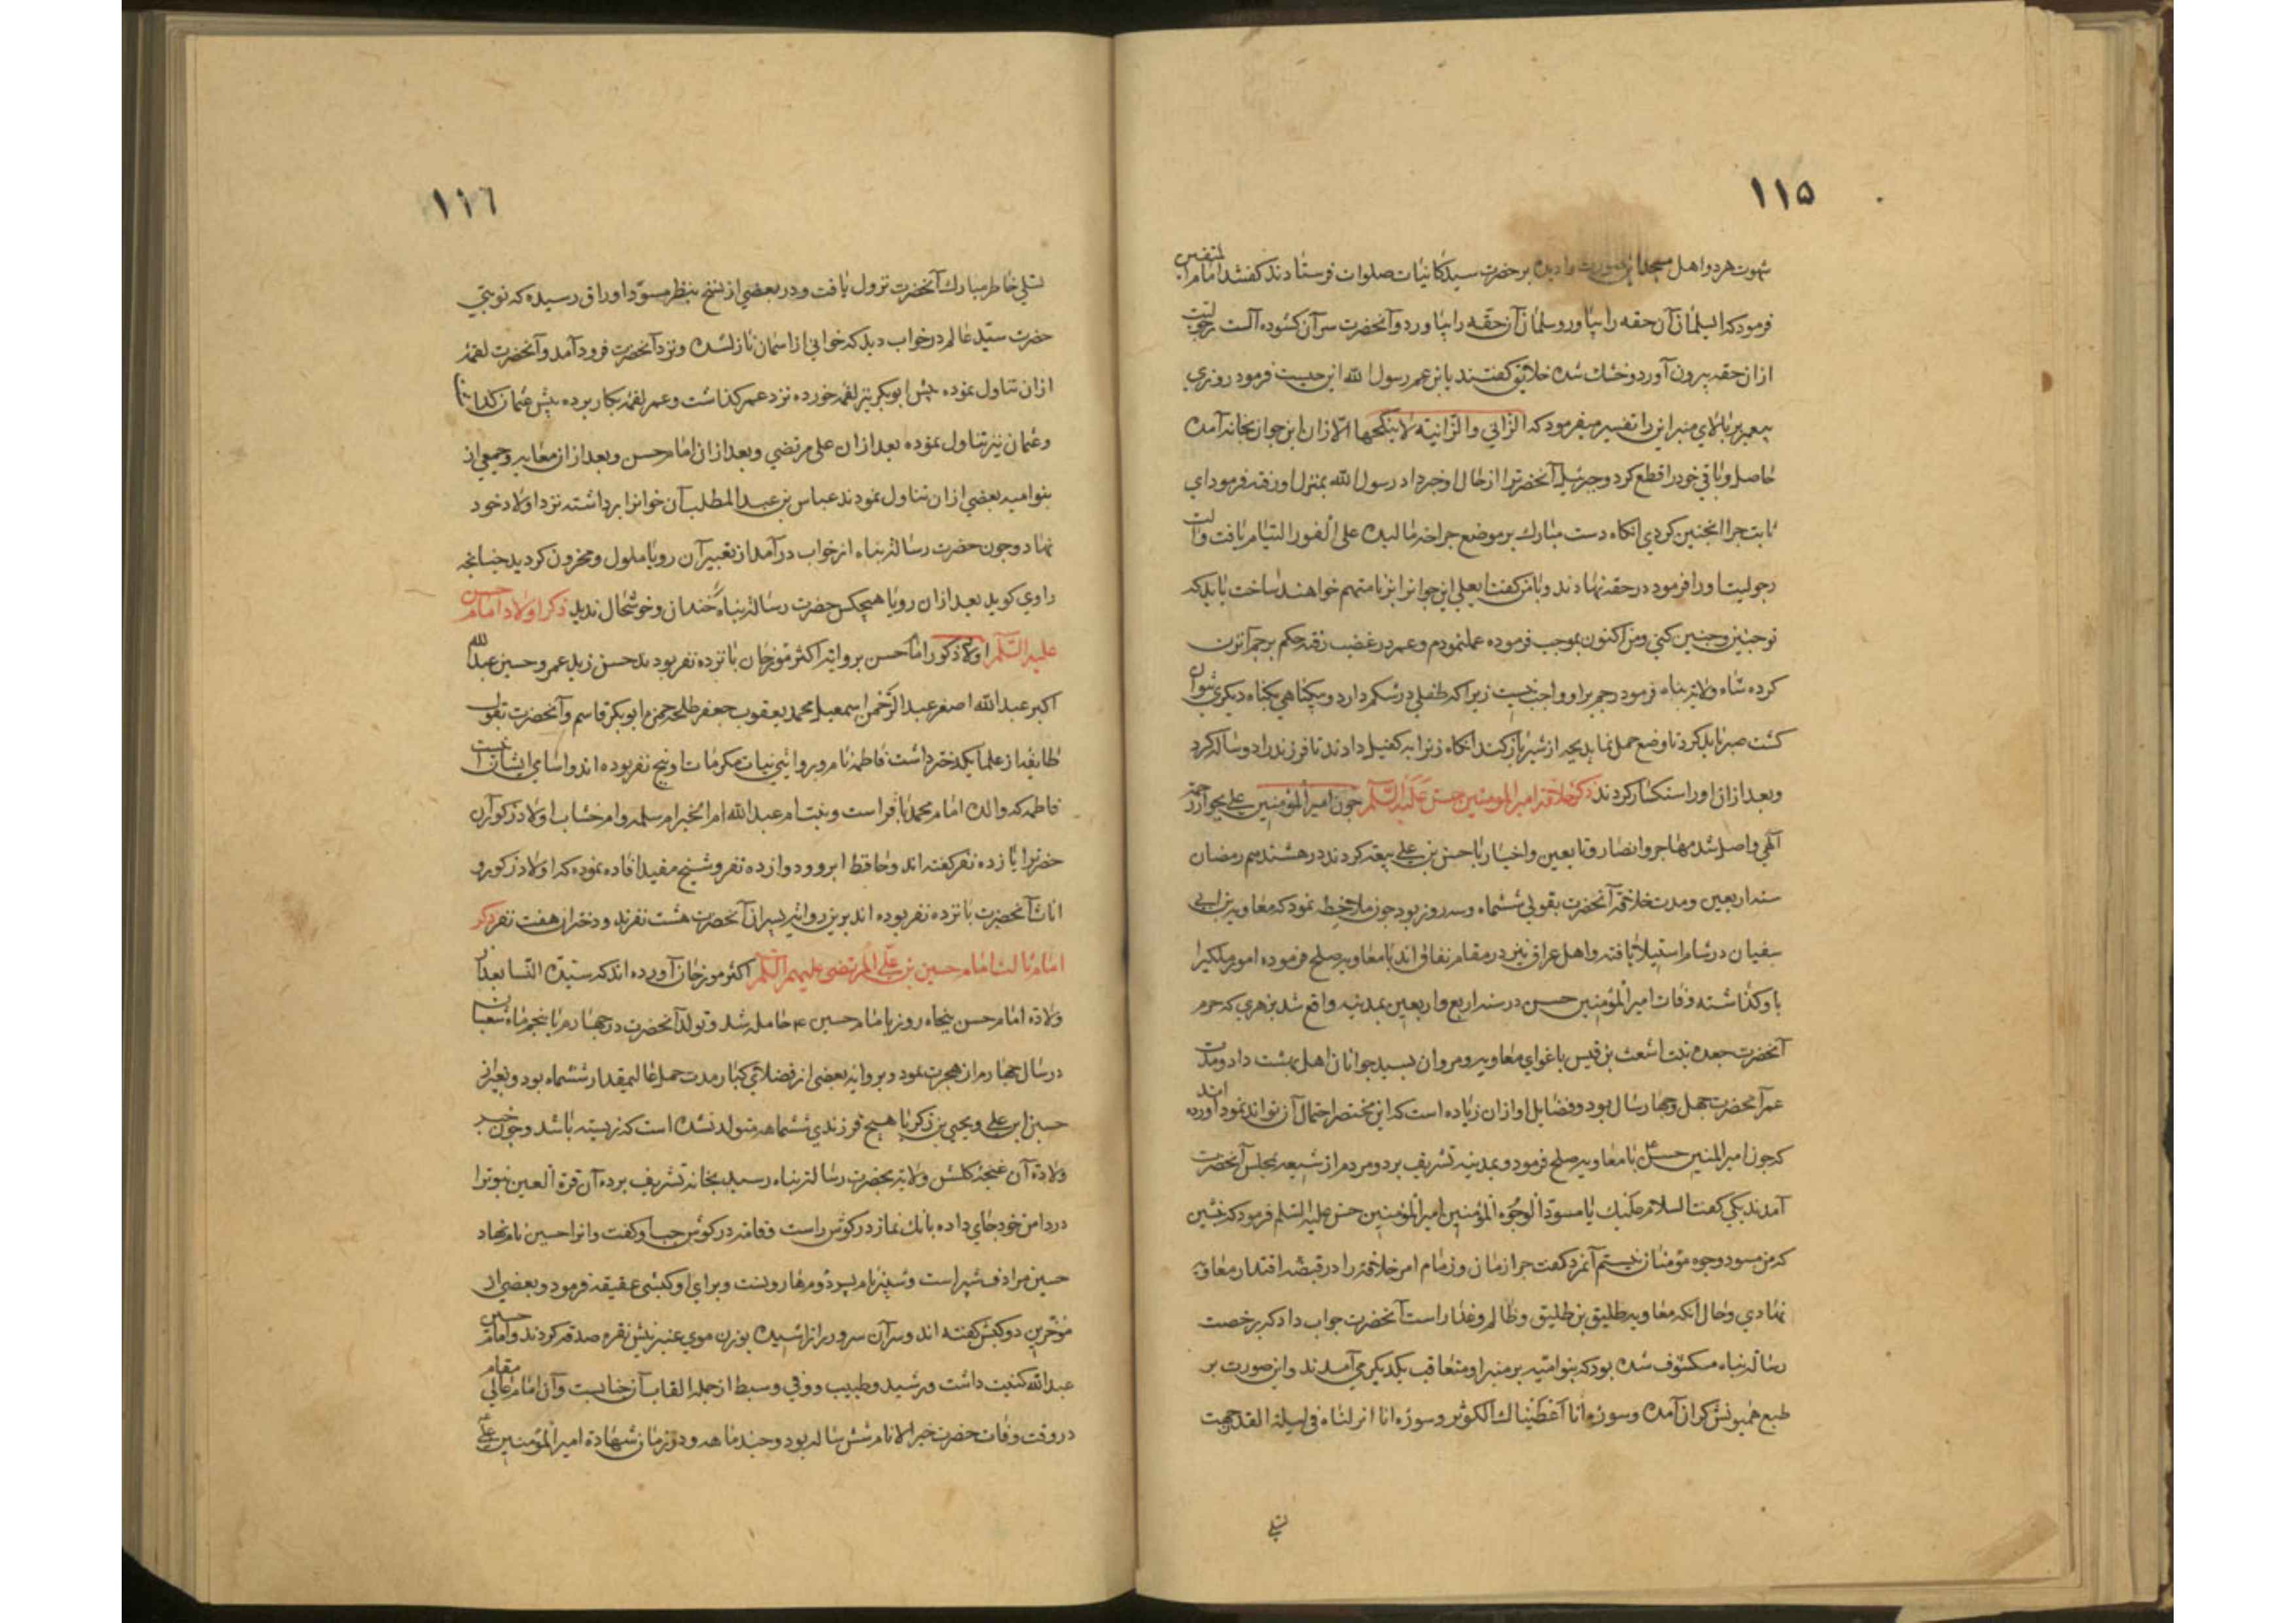 ۱۱۵
شهوت هردو اهل مسجد این صورت را دیده بر حضرت سید کائنات صلوات فرستادند کفتند امام المتقین
فرمود که ای سلمان آن حقه را بیاور و سلمان آن حقه را بیاورد و آنحضرت سر آن کشوده آلت رجولیت
از ان حقه بیرون آورد و خشك شده خلائق کفتند یا بن عم رسول الله این چیست فرمود روزی
پیغمبر بر بالای منبر این را تفسیر میفرمود که الزانی والزانیة لا ینکحها الا زان این جوان بخانه آمده
حاصل و باقی خود را قطع کرد و جبرئیل آنحضرت را از حال او خبر داد رسول الله بمنزل او رفته فرمود ای
ثابت چرا اینچنین کردی انکاه دست مبارك بر موضع جراحة مالیده علی الفور التیام یافت والت
رجولیت او را فرمود در حقه نهادند و با من کفت یا علی این جوان را بزنا متهم خواهند ساخت باید که
تو چنین و چنین کنی و من اکنون بموجب فرموده عمل نمودم و عمر در غضب رفته حکم برجم آن زن
کرده شاه ولایة پناه فرمود رجم بر او واجب نیست زیرا که طفلی در شکم دارد و بیکناهی بکناه دیکری نتوان
کشت صبر باید کرد تا وضع حمل نماید بچه از شیر باز کند انکاه زن را به کفیل دادند تا فرزند را دو ساله کرد
وبعد از ان او را سنکسار کردند ذکر خلافة امیر المومنین حسن علیه السلم چون امیر المؤمنین علی بجوار رحمة
الهی واصل شد مهاجر وانصار و تابعین واخیار با حسن بن علی بیعة کردند در هشتدهم رمضان
سنه اربعین ومدت خلافة آنحضرت بقولی ششماه وسه روز بود چون ملاحظه نمود که معاویة بن ابی
سفیان در شام استیلا یافته واهل عراق نیز در مقام نفاق اند با معاویه صلح فرموده امور ملکیرا
باو کذاشته وفات امیر المؤمنین حسن در سنه اربع واربعین بمدینه واقع شد بزهری که حرم
آنحضرت جعده بنت اشعث بن قیس باغوای معاویه و مروان بسید جوانان اهل بهشت داد ومدت
عمر آنحضرت چهل وچهار سال بود و فضایل او از ان زیاده است که این مختصر احتمال آن تواند نمود آورده اند
که چون امیر المنین حسن ع با معاویه صلح فرمود و بمدینه تشریف برد و مردم از شیعه بمجلس آنحضرت
آمدند یکی کفت السلام علیك یا مسود الوجوه المؤمنین امیر المؤمنین حسن علیه السلم فرمود که
که من مسود وجوه مؤمنان نیستم آنمرد کفت چرا زمان وزمام امر خلافة را در قبضه اقتدار معاویه
نهادی وحال آنکه معاویه طلیق بن طلیق وظالم وغدار است آنحضرت جواب داد که بر حضرت
رسالة پناه مکشوف شده بود که بنو امیّه بر منبر او متعاقب یکدیکر می آمدند واین صورت بر
طبع همیونش کران آمده وسوره انا اعطیناك الکوثر وسوره انا انزلناه فی لیلة القدر جهت
تسلی
۱۱٦
تسلی خاطر مبارك آنحضرت نزول یافت ودر بعضی از نسخ بنظر مسوّد اوراق رسیده که نوبتی
حضرت سیّد عالم در خواب دید که خوانی از اسمان نازل شده ونزد آنحضرت فرود آمد وآنحضرت لقمهٔ
از ان تناول نموده پیش ابوبکر نیز لقمه خورده نزد عمر کذاشت وعمر لقمهٔ بکار برده پیش عثمان کذاشت تا
وعثمان نیز تناول نموده بعد از ان علی مرتضی وبعد از ان امام حسن وبعد از ان معاویه وجمعی از
بنو امیه بعضی از ان تناول نمودند عباس بن عبد المطلب آن خوانرا برداشته نزد اولاد خود
نهاد وچون حضرت رسالة پناه از خواب درآمد از تعبیر آن رویا ملول ومحزون کردید چنانچه
راوی کوید بعد از ان رویا هیچکس حضرت رسالة پناه را خندان وخوشحال ندید ذکر اولاد امام حسن
علیه السّلم اولاد ذکور امام حسن بروایة اکثر مؤرخان پانزده نفر بودند حسن زید عمر وحسین عبد الله
اکبر عبد الله اصغر عبد الرّحمن اسمعیل محمد یعقوب جعفر طلحه حمزه ابوبکر قاسم وآنحضرت بقول
طایفهٔ از علما یکدختر داشت فاطمه نام وبروایتی بنیات مکرمات او پنج نفر بوده اند واسامی ایشان اینست
فاطمه که والده امام محمد باقر است وبنت ام عبد الله ام الخیر ام سلمه وام حسناب اولاد ذکور آن
حضرترا یازده نفر کفته اند وحافظ ابرو دوازده نفر وشیخ مفید افاده نموده که اولاد ذکور و
اناث آنحضرت پانزده نفر بوده اند برین روایة پسران آنحضرت هشت نفرند ودختران هفت نفر ذکر
امام ثالث امام حسین بن علی المرتضی علیهم السّلم اکثر مورخان آورده اند که سیّدة النّسا بعد از
ولادة امام حسن پنجاه روز بامام حسین ع حامله شد وتولد آنحضرت در چهارم یا پنجم ماه شعبان
در سال چهارم از هجرت نمود وبروایة بعضی از فضلای کبار مدت حمل عالیمقدار ششماه بود وبغیر از
حسین ابن علی ویحیی بن زکریا هیچ فرزندی ششماهه متولد نشده است که زیسته باشد وچون خبر
ولادة آن غنچهٔ کلشن ولایة بحضرت رسالة پناه رسید بخانه تشریف برده آن قرة العین نبوترا
در دامن خود جای داده بانك نماز در کوش راست وقامة در کوش چپ او کفت وانرا حسین نام نهاد
حسین مرادف شبیر است وشبیر نام پسر دوم هارونست وبرای او کبشی عقیقه فرمود وبعضی از
مؤخرین دو کبش کفته اند وسر آن سرور را تراشیده بوزن موی عنبرینش نقره صدقه کردند وامام حسین
عبد الله کنیت داشت ورشید وطبیب ووفی وسبط از جمله القاب آن جنابست وآن امام عالی مقام
در وقت وفات حضرت خیر الانام شش ساله بود وچند ماهه ودر زمان شهادة امیر المؤمنین علی ع